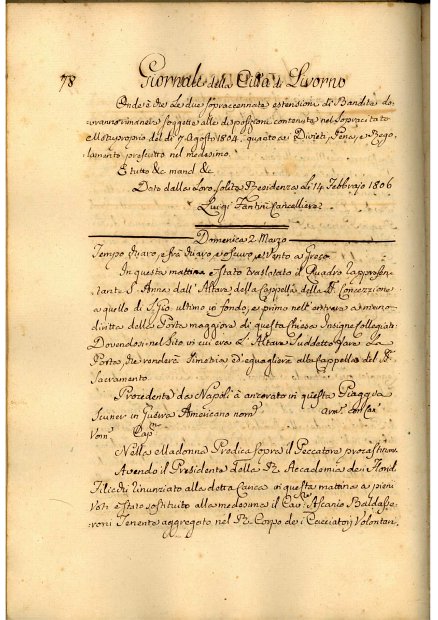 78 Giornale della Città di Livorno
Onde è che le due sopraccennate estensioni di Bandita do=
vranno rimanere soggette alle disposizioni contenute nel sopracitato
Motuproprio del dì 7. Agosto 1804. quanto ai Divieti, Pene, e Rego=
lamento prescritto nel medesimo.
E tutto &c. mand &c.
Dato dalla loro solita Residenza li 14 Febbrajo 1806
Luigi Fantini Cancelliere
Domenica 2. Marzo
Tempo chiaro, e frà chiaro, e oscuro, e Vento a Greco
In questa mattina è stato traslatato il Quadro rappresen=
tante S. Anna dall' Altare della Cappella della SS. Concezzione
a quello di S. Gio. ultimo in fondo, e primo nell' entrare a mano
diritta della Porta maggiore di questa Chiesa Insigne Collegiata
Dovendosi nel Sito vi era l' Altare Suddetto fare la
Porta, che renderà Simetria ed eguaglierà alla Cappella del SS.
Sacramento.
Procedente da Napoli à ancorato in questa Piaggia
Scuner in Guerra Americano nom.
Com. Cap.
Nella Madonna Predica sopra il Peccatore procastinante
Avendo il Presidente della R. Accademia dei
rinunziato alla detta Carica in questa mattina a pieni
Voti è stato sostituito alla medesima il Cav. Ascanio Baldasse=
roni Tenente aggregato nel R. Corpo dei Cacciatori Volontari,